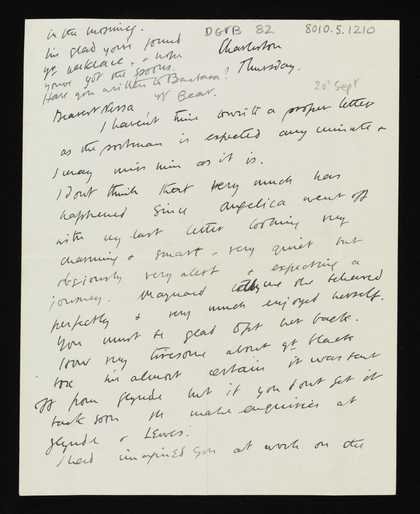 in the morning.
DGVB 82
8010.5.1210
Im glad youve found
yr necklace. & hope
Charleston
youve got the spoons.
Have you written to Barbara?
Thursday.
yr Bear.
20 Sept
Dearest
I havent time to write a proper letter
as the postman is expected any minute &
I may miss him as it is.
I dont think that very much has
happened since Angelica went off
with my last letter looking very
charming & smart & very quiet but
obviously very alert & expecting a
journey. Maynard tells me she behaved
perfectly & very much enjoyed herself.
You must be glad to get her back.
How very tiresome about yr black
box Im almost certain it was sent
off from Glynde but if you dont get it
back soon Ill make enquiries at
Glynde & Lewes.
I had imagined you at work on the